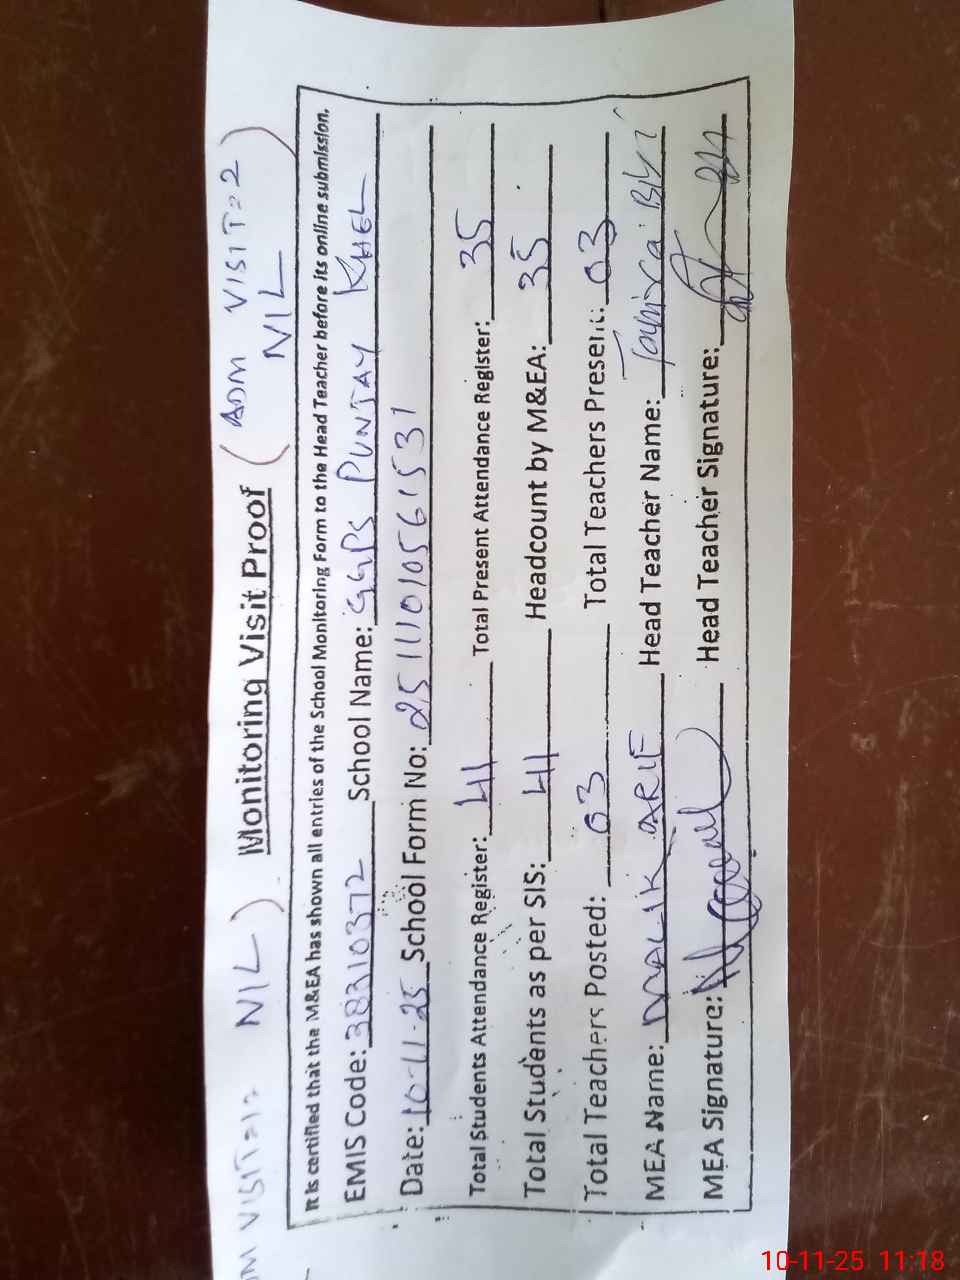 VISIT=1: NIL) Monitoring Visit Proof (ADM VISIT=2
NIL)
It is certified that the M&EA has shown all entries of the School Monitoring Form to the Head Teacher before its online submission.
EMIS Code: 38310372 School Name: GGPS PUNJAY KHEL
Date: 10-11-25 School Form No: 25111010561531
Total Students Attendance Register: 41 Total Present Attendance Register: 35
Total Students as per SIS: 41 Headcount by M&EA: 35
Total Teachers Posted: 03 Total Teachers Present: 03
MEA Name: MALIK ARIF Head Teacher Name: Bibi
MEA Signature: Head Teacher Signature:
10-11-25 11:18